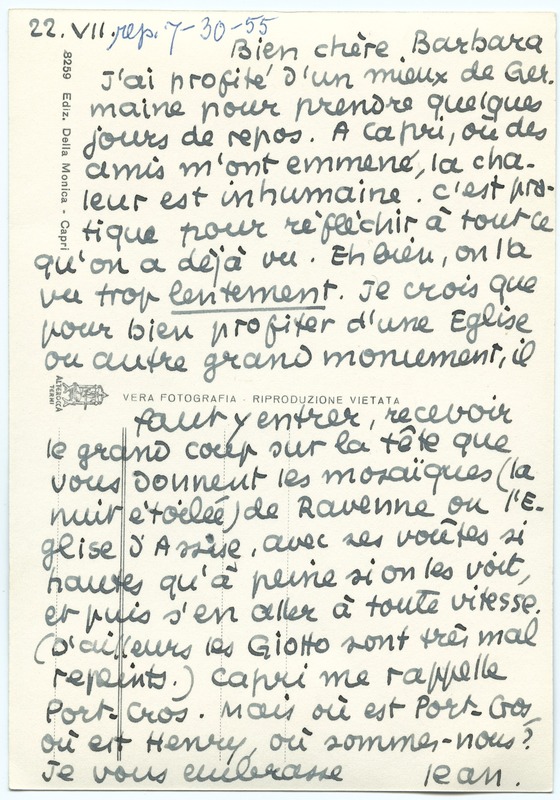 22.VII. rep. 7-30-55
Bien chère Barbara
J'ai profité d'un mieux de Ger-
maine pour prendre quelques
jours de repos. A Capri, où des
amis m'ont emmené, la cha-
leur est inhumaine. C'est pra-
tique pour réfléchir à tout ce
qu'on a déjà vu. Eh bien, on l'a
vu trop lentement. Je crois que
pour bien profiter d'une Eglise
ou autre grand monument, il
faut y entrer, recevoir
le grand coup sur la tête que
vous donnent les mosaïques (la
nuit étoilée) de Ravenne ou l'E-
glise d'Assise, avec ses voûtes si
hautes qu'à peine si on les voit,
et puis s'en aller à toute vitesse.
(D'ailleurs les Giotto sont très mal
repeints.) Capri me rappelle
Port-Cros. Mais où est Port-Cros,
où est Henry, où sommes-nous?
Je vous embrasse Jean.
8259 Ediz. Della Monica - Capri
ALTEROCCA
TERNI
VERA FOTOGRAFIA - RIPRODUZIONE VIETATA